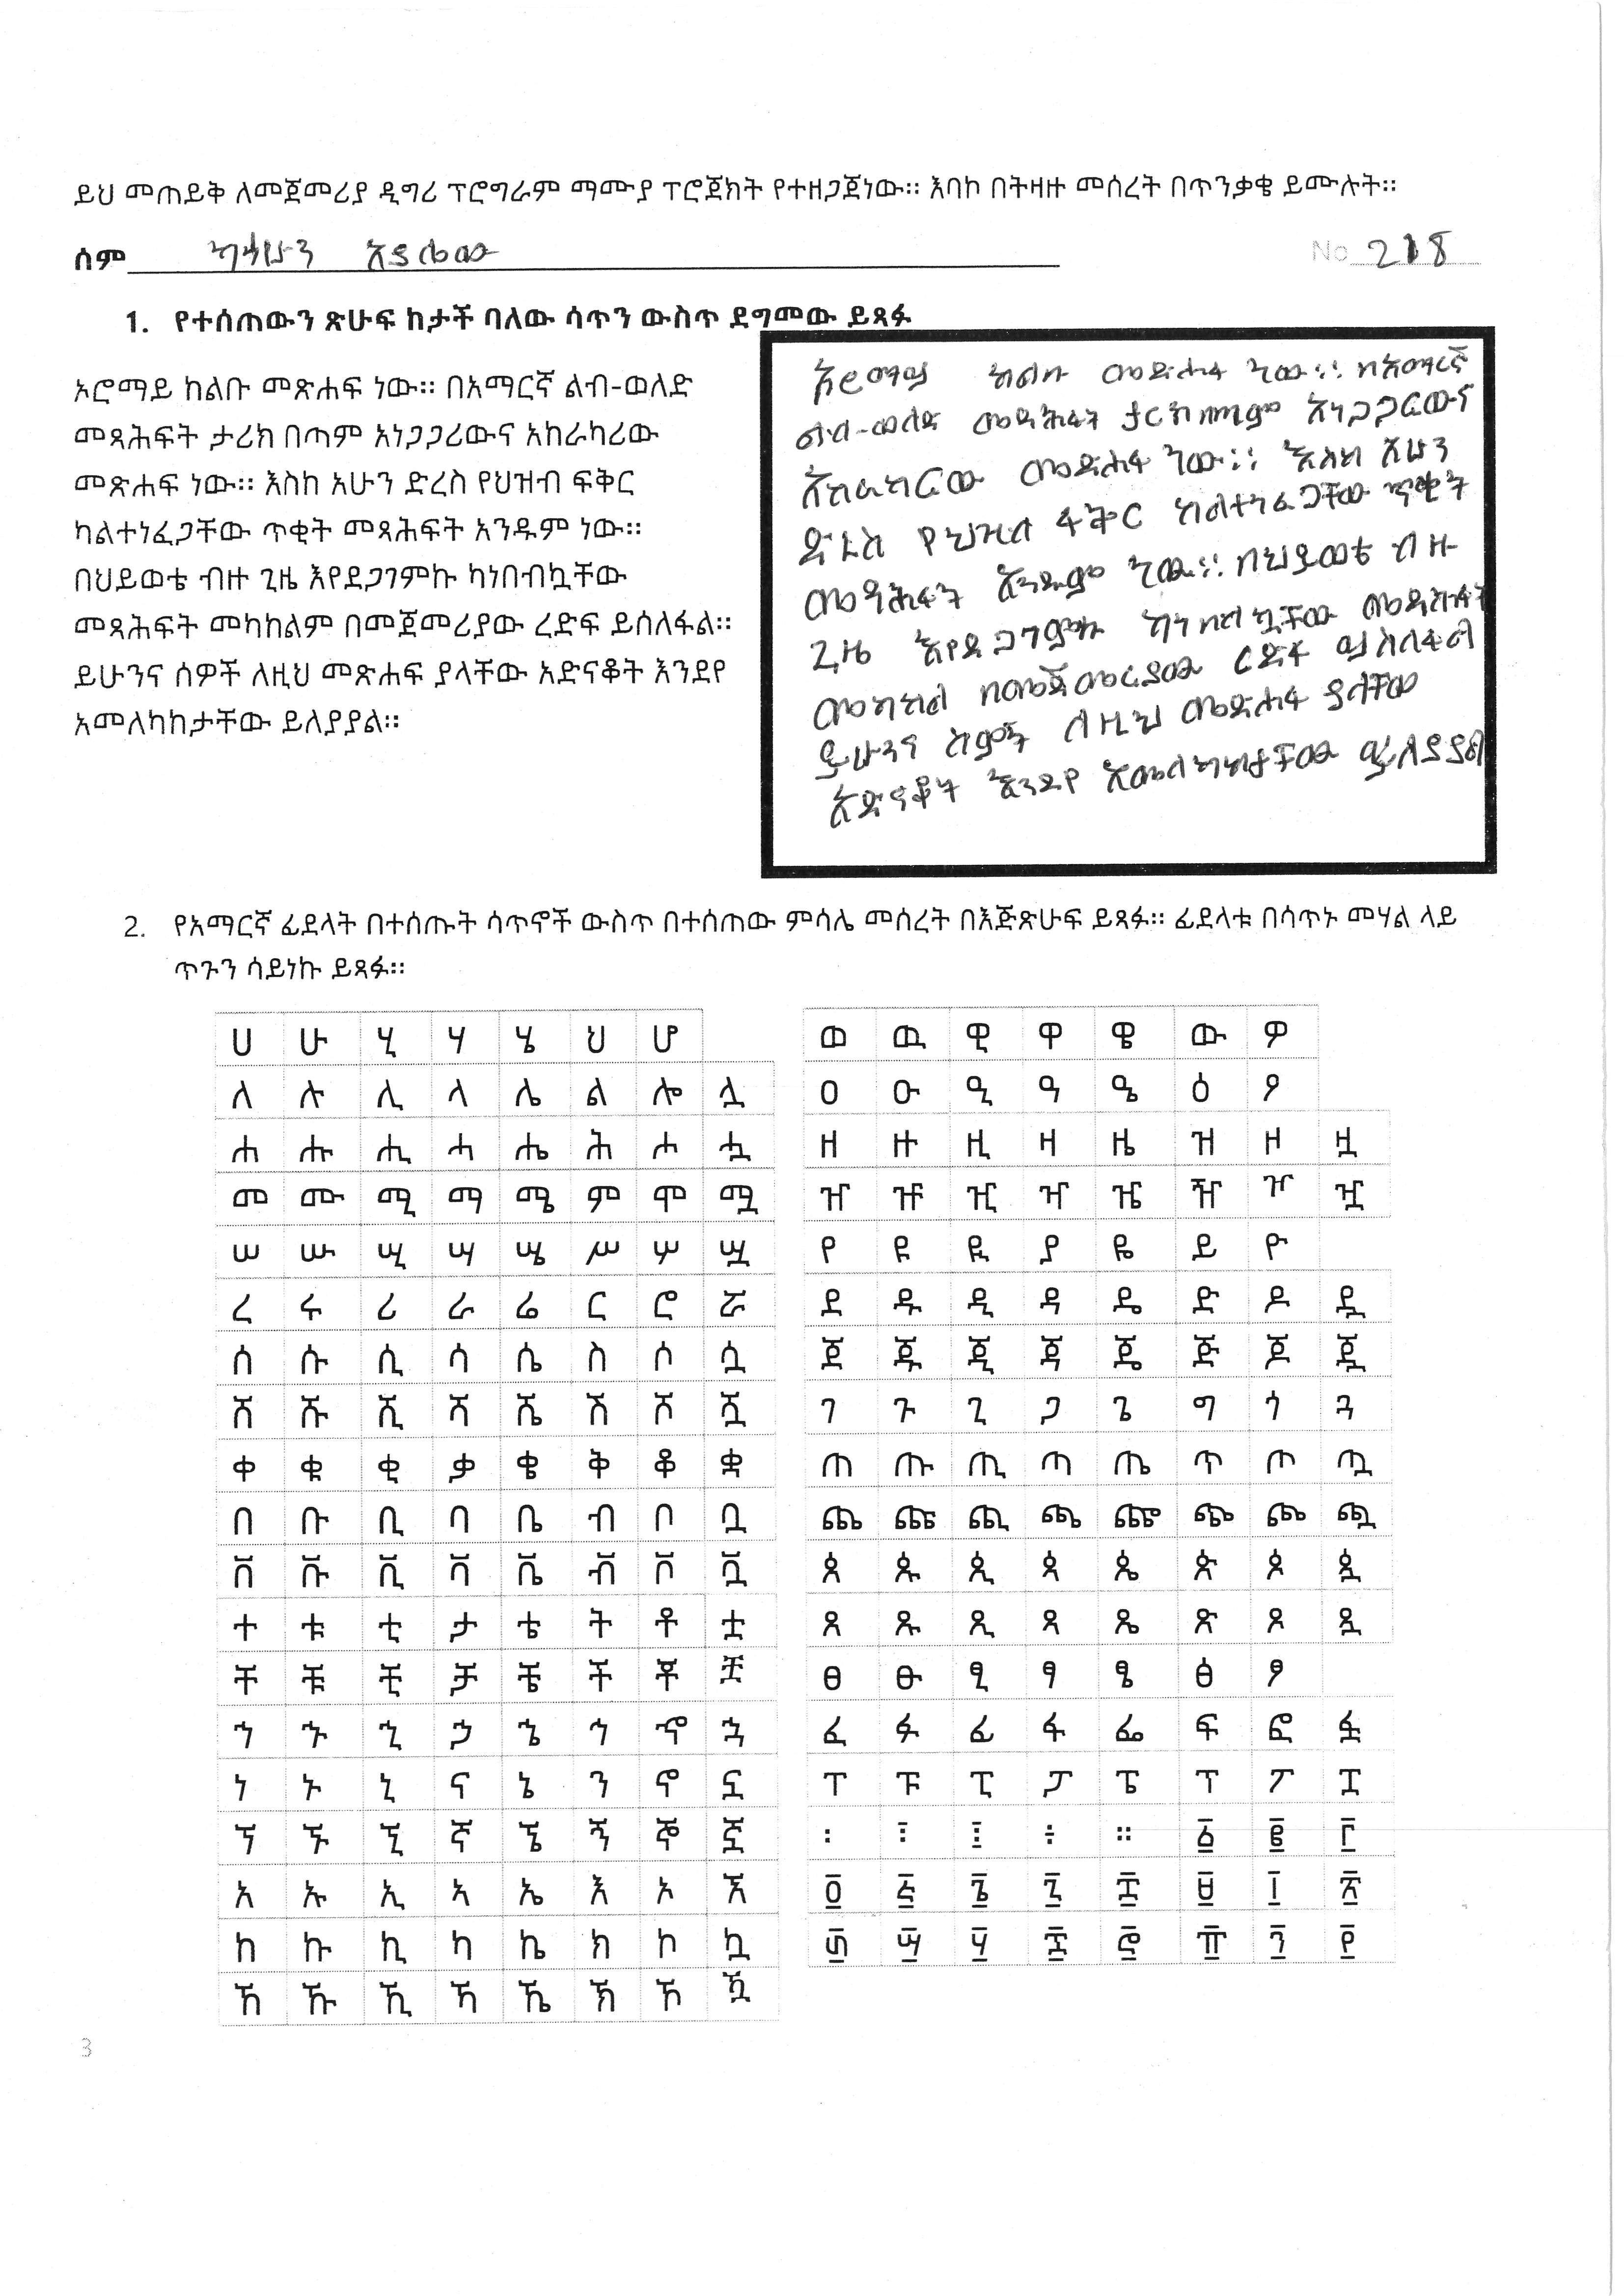 ይህ መጠይቅ ለመጀመሪያ ዲግሪ ፕሮግራም ማሙያ ፕሮጀክት የተዘጋጀነው። እባኮ በትዛዙ መሰረት በጥንቃቄ ይሙሉት።
ሰም
No 218
1. የተሰጠውን ጽሁፍ ከታች ባለው ሳጥን ውስጥ ደግመው ይጻፉ
ኦሮማይ ከልቡ መጽሐፍ ነው። በአማርኛ ልብ-ወለድ
መጻሕፍት ታሪክ በጣም አነጋጋሪውና አከራካሪው
መጽሐፍ ነው። እስከ አሁን ድረስ የህዝብ ፍቅር
ካልተነፈጋቸው ጥቂት መጻሕፍት አንዱም ነው።
በህይወቴ ብዙ ጊዜ እየደጋገምኩ ካነበብኳቸው
መጻሕፍት መካከልም በመጀመሪያው ረድፍ ይሰለፋል።
ይሁንና ሰዎች ለዚህ መጽሐፍ ያላቸው አድናቆት እንደየ
አመለካከታቸው ይለያያል።
ከልቡ መጽሐፍ ነው። በአማረኛ
ልብ-ወለድ መጻሕፍት ታርክ በጣምም አነጋጋርውና
አከራካርው መጽሐፍ ነው። እስከ አሁን
ድረስ የህዝብ ፋቅር ካልተነፈጋቸው ጥቂት
መጻሕፍት አንዱም ነው። በህይወቴ ብዙ
ጊዜ እየደጋገምኩ ካነበብኳቸው መጻሕፍት
መካከል በመጀመርያው ርድፋ ይሰለፋል
ይሁንና ለዚህ መጽሐፍ ያላቸው
አድናቆት እንደየ አመለካከታቸው ይለያያል
2. የአማርኛ ፊደላት በተሰጡት ሳጥኖች ውስጥ በተሰጠው ምሳሌ መሰረት በእጅጽሁፍ ይጻፉ። ፊደላቱ በሳጥኑ መሃል ላይ
ጥጉን ሳይነኩ ይጻፉ።
ሀ ሁ ሂ ሃ ሄ ህ ሆ
ለ ሉ ሊ ላ ሌ ል ሎ ሏ
ሐ ሑ ሒ ሓ ሔ ሕ ሖ ሗ
መ ሙ ሚ ማ ሜ ም ሞ ሟ
ሠ ሡ ሢ ሣ ሤ ሥ ሦ ሧ
ረ ሩ ሪ ራ ሬ ር ሮ ሯ
ሰ ሱ ሲ ሳ ሴ ስ ሶ ሷ
ሸ ሹ ሺ ሻ ሼ ሽ ሾ ሿ
ቀ ቁ ቂ ቃ ቄ ቅ ቆ ቋ
በ ቡ ቢ ባ ቤ ብ ቦ ቧ
ቨ ቩ ቪ ቫ ቬ ቭ ቮ ቯ
ተ ቱ ቲ ታ ቴ ት ቶ ቷ
ቸ ቹ ቺ ቻ ቼ ች ቾ ቿ
ኀ ኁ ኂ ኃ ኄ ኅ ኆ ኋ
ነ ኑ ኒ ና ኔ ን ኖ ኗ
ኘ ኙ ኚ ኛ ኜ ኝ ኞ ኟ
አ ኡ ኢ ኣ ኤ እ ኦ ኧ
ከ ኩ ኪ ካ ኬ ክ ኮ ኳ
ኸ ኹ ኺ ኻ ኼ ኽ ኾ ዃ
ወ ዉ ዊ ዋ ዌ ው ዎ
ዐ ዑ ዒ ዓ ዔ ዕ ዖ
ዘ ዙ ዚ ዛ ዜ ዝ ዞ ዟ
ዠ ዡ ዢ ዣ ዤ ዥ ዦ ዧ
የ ዩ ዪ ያ ዬ ይ ዮ
ደ ዱ ዲ ዳ ዴ ድ ዶ ዷ
ጀ ጁ ጂ ጃ ጄ ጅ ጆ ጇ
ገ ጉ ጊ ጋ ጌ ግ ጎ ጓ
ጠ ጡ ጢ ጣ ጤ ጥ ጦ ጧ
ጨ ጩ ጪ ጫ ጬ ጭ ጮ ጯ
ጰ ጱ ጲ ጳ ጴ ጵ ጶ ጷ
ጸ ጹ ጺ ጻ ጼ ጽ ጾ ጿ
ፀ ፁ ፂ ፃ ፄ ፅ ፆ
ፈ ፉ ፊ ፋ ፌ ፍ ፎ ፏ
ፐ ፑ ፒ ፓ ፔ ፕ ፖ ፗ
፡ ፤ ፥ ፦ ። ፩ ፪ ፫
፬ ፭ ፮ ፯ ፰ ፱ ፲ ፳
፴ ፵ ፶ ፷ ፸ ፹ ፺ ፻
3